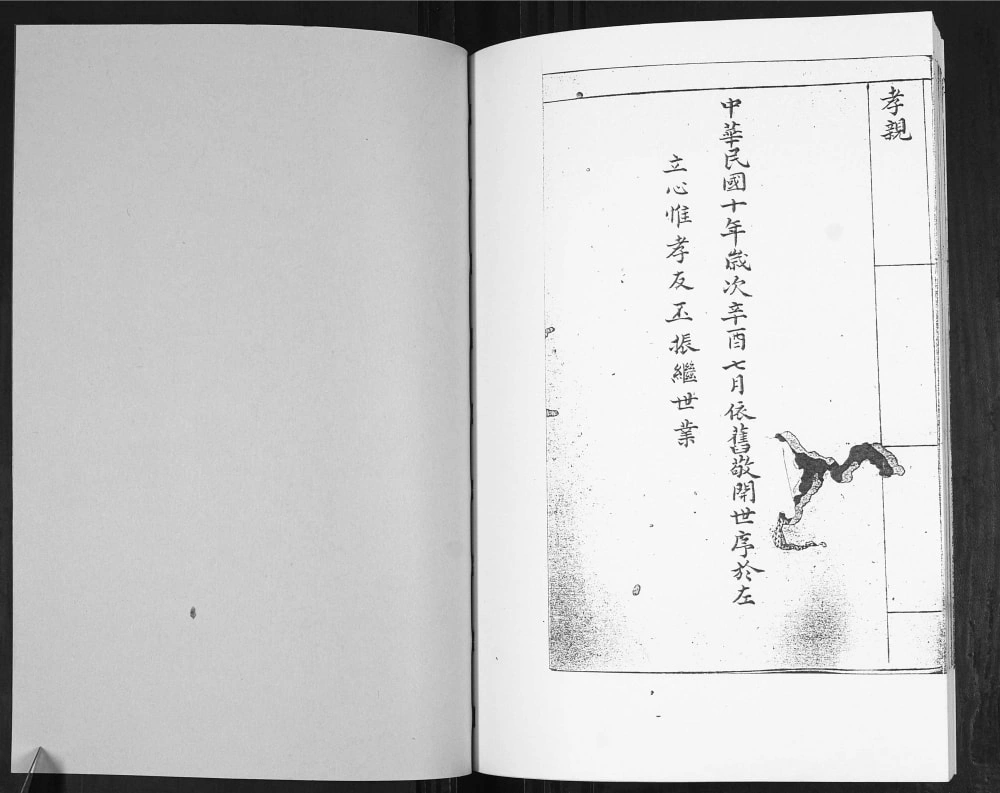 孝親
中華民國十年歲次辛酉七月依舊敬開世序於左
立心惟孝友玉振繼世業